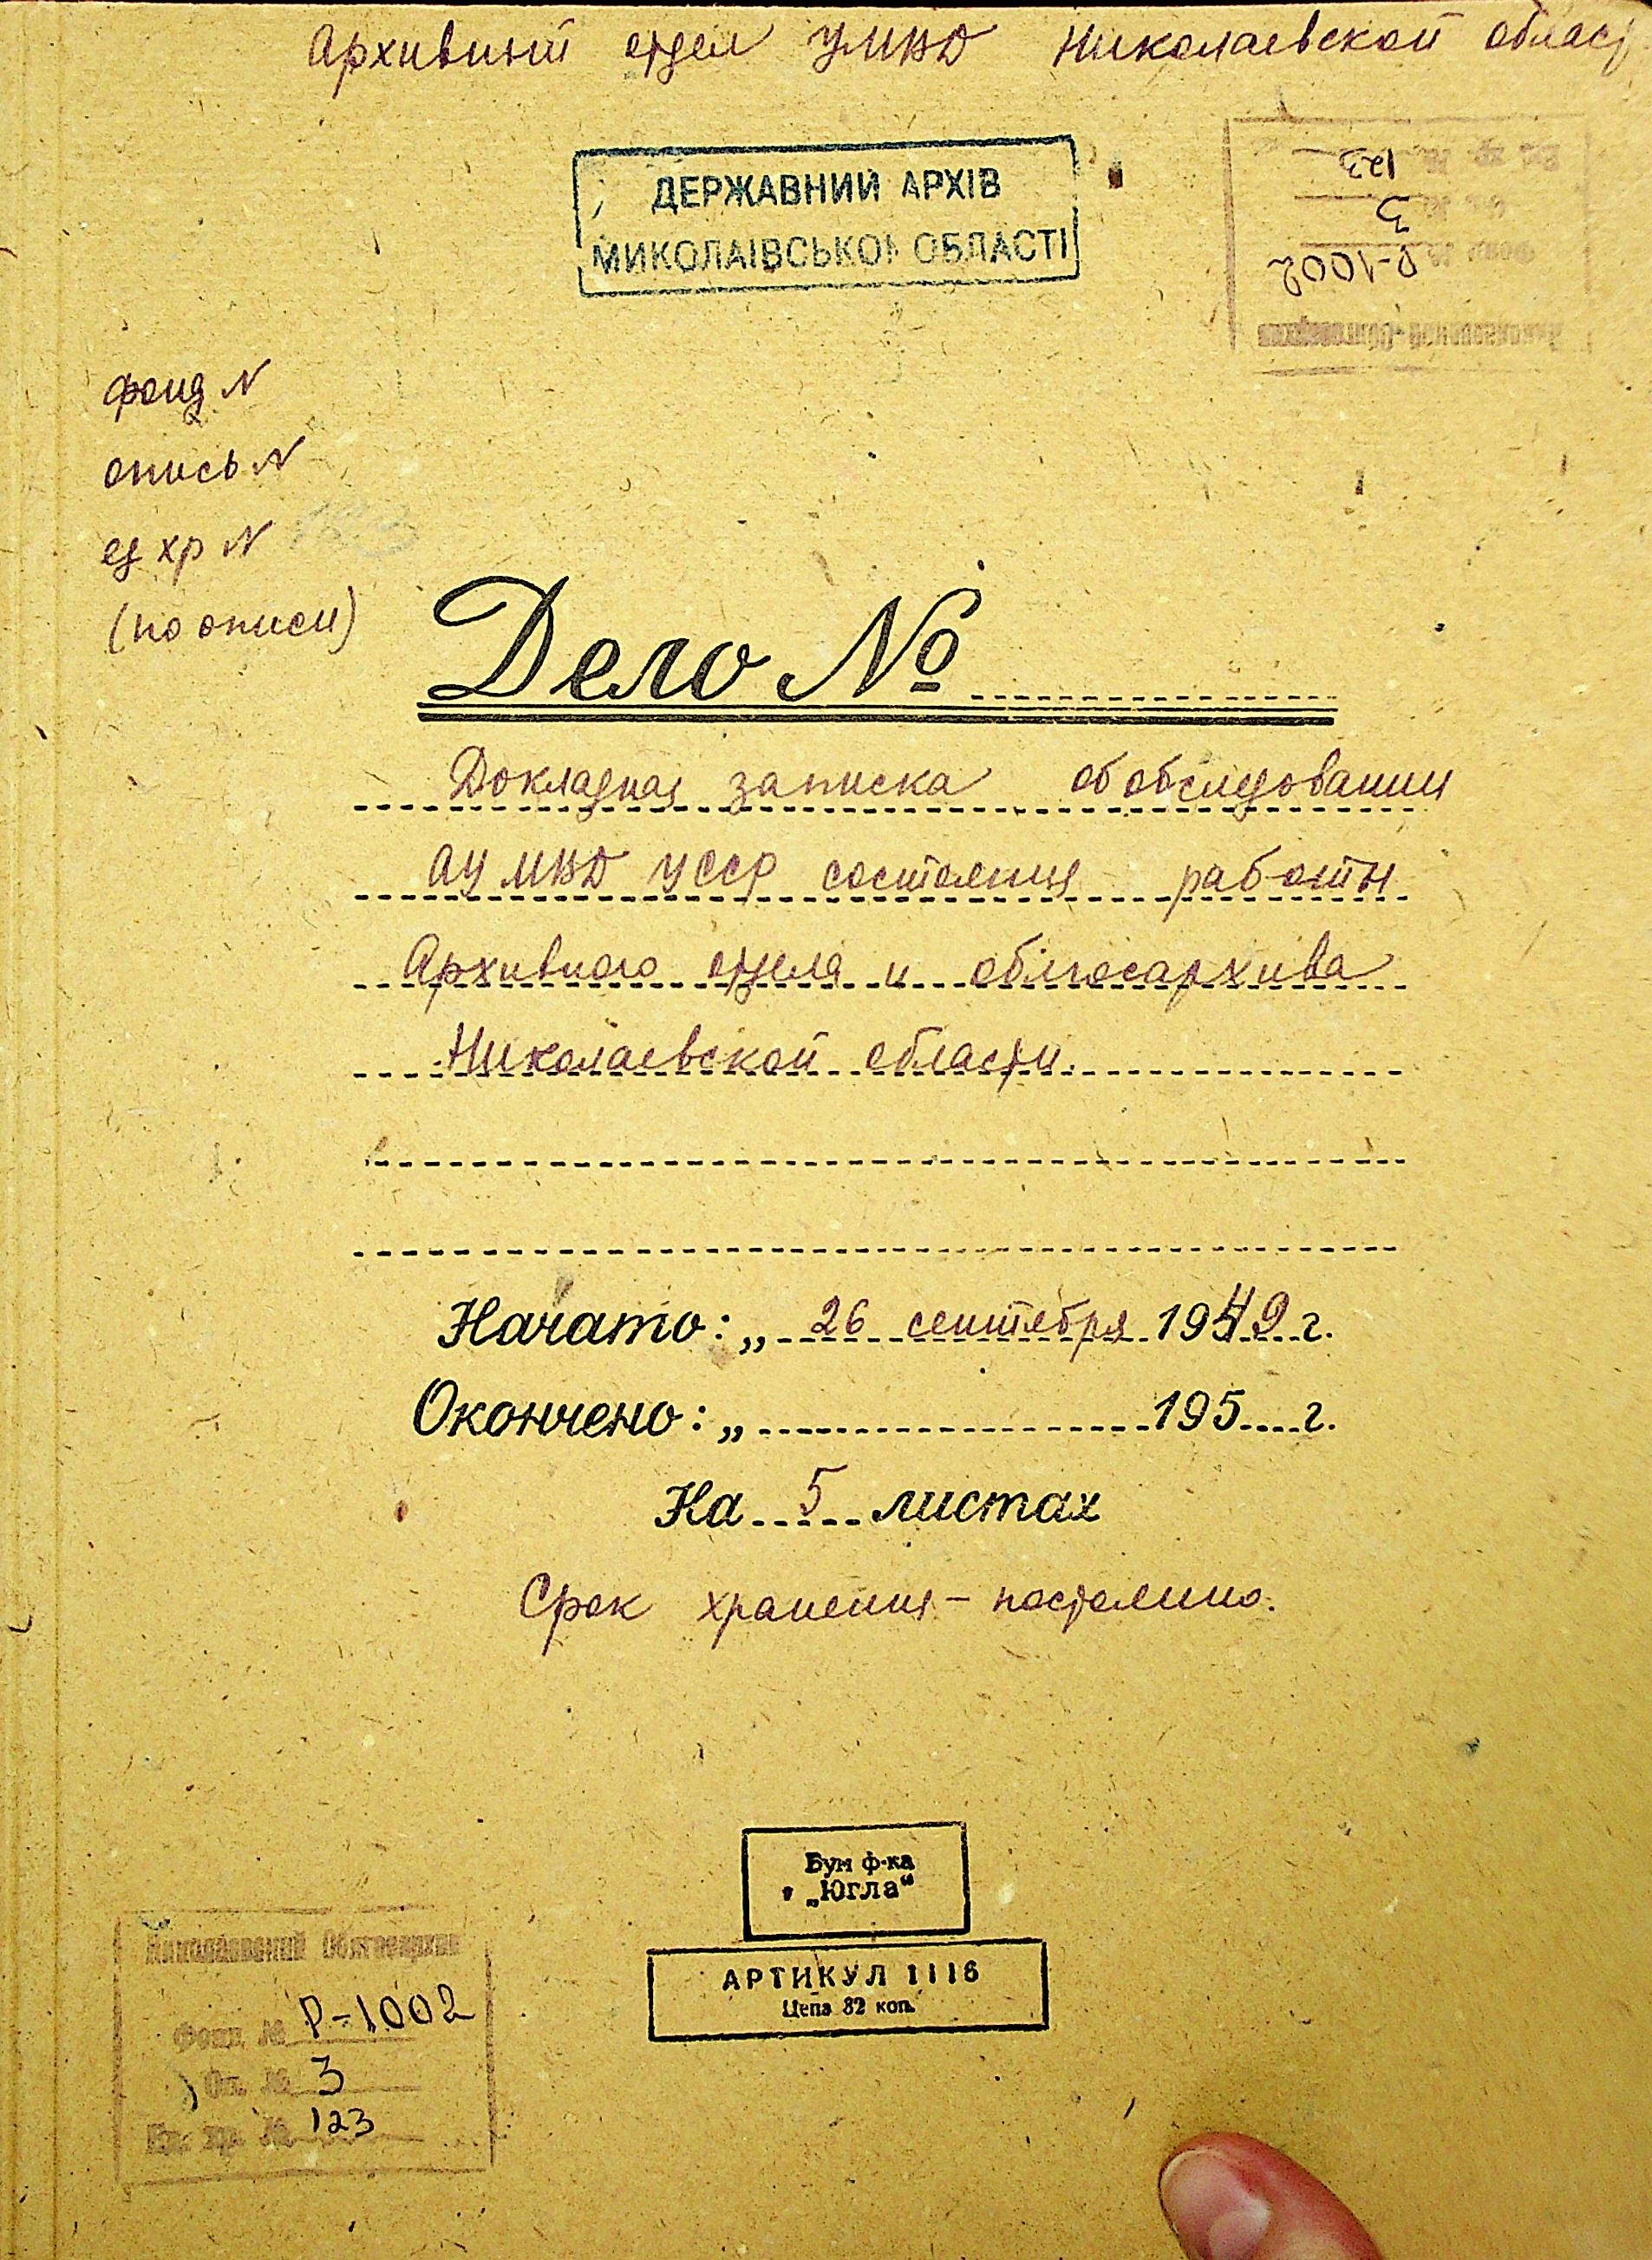 Архивный отдел УМВД Николаевской област
ДЕРЖАВНИЙ АРХІВ
МИКОЛАІВСЬКОІ ОБЛАСТІ
Ед. хр. № 123
Оп. № 3
Фонд № Р-1002
Николаевский Облгосархив
фонд N
опись N
ед хр N 123
(по описи)
Дело №
Докладная записка об обследовании
АУ МВД УССР состояния работы
Архивного отдела и облгосархива
Николаевской области.
Начато: „ 26 сентября 1949 г.
Окончено: „ 195 г.
На 5 листах
Срок хранения – постоянно.
Бум ф-ка
„Югла“
АРТИКУЛ 1116
Цена 32 коп.
Николаевский Облгосархив
Фонд № Р-1002
Оп. № 3
Ед. хр. № 123